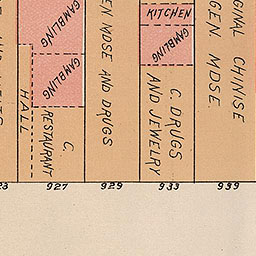 GAMBLING
GAMBLING
HALL
C.
RESTAURANT
EN MDSE AND DRUGS
KITCHEN
GAMBLING
C. DRUGS
AND JEWELRY
GEN. MDSE.
CHINISE
927
929
933
939